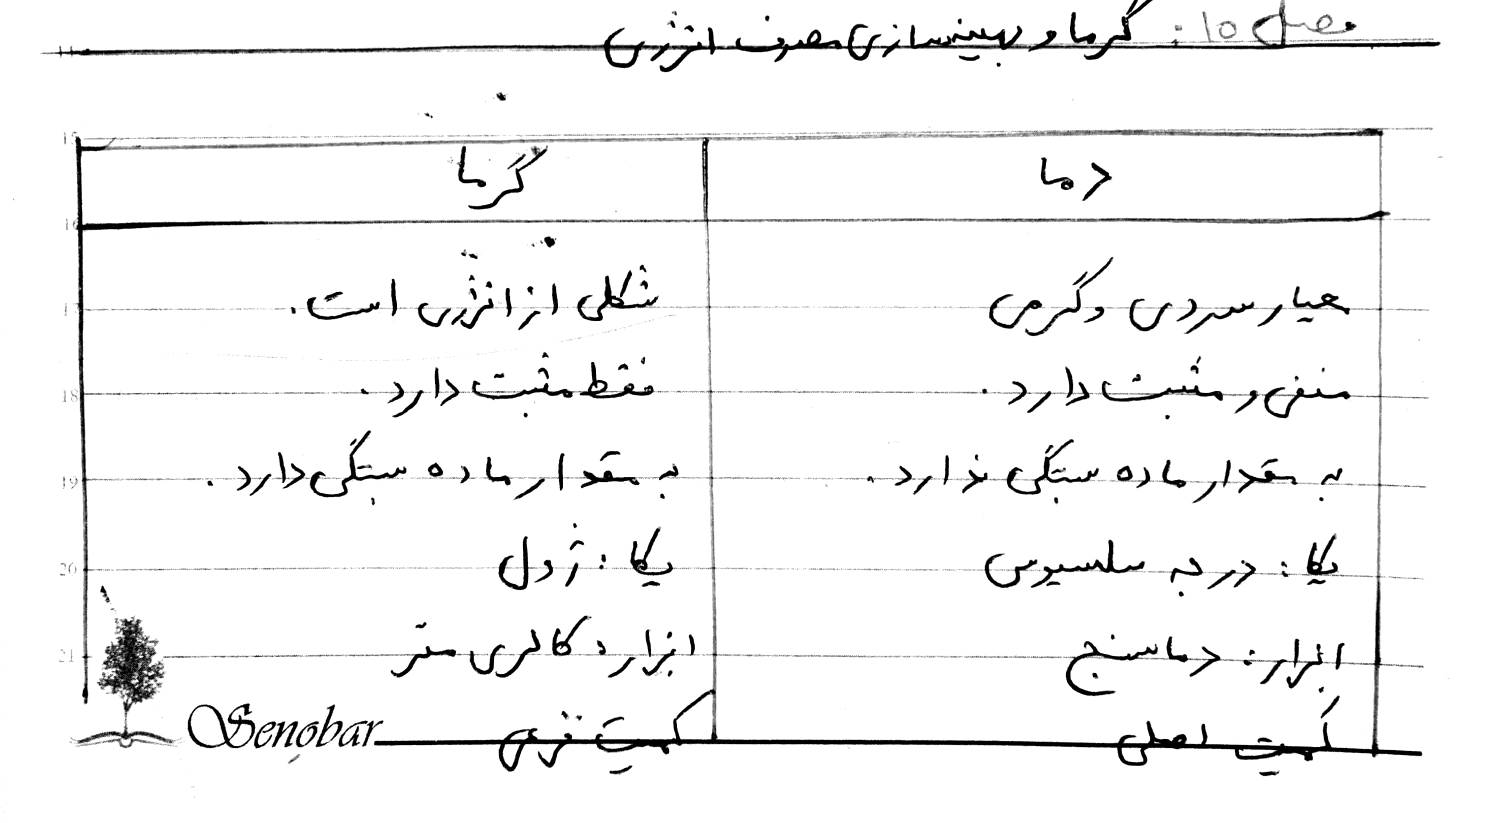 فصل ۱۰: گرما و بهینه‌سازی مصرف انرژی
دما	گرما
معیار سردی و گرمی	شکلی از انرژی است.
منفی و مثبت دارد.	فقط مثبت دارد.
به مقدار ماده بستگی ندارد.	به مقدار ماده بستگی دارد.
یکا: درجه سلسیوس	یکا: ژول
ابزار: دماسنج	ابزار: کالری متر
کمیت اصلی	کمیت فرعی
Senobar
15
16
17
18
19
20
21